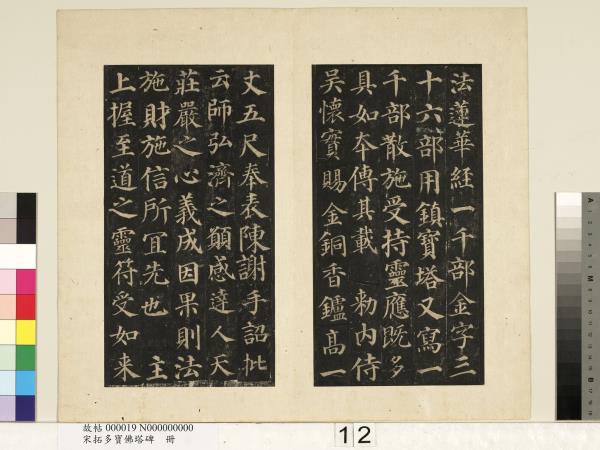 法蓮華經一千部金字三
十六部用鎮寶塔又寫一
千部散施受持靈應既多
具如本傳其載 勑內侍
吳懷寶賜金銅香鑪高一
丈五尺奉表陳謝手詔批
云師弘濟之願感達人天
莊嚴之心義成因果則法
施財施信所宜先也 主
上握至道之靈符受如来
故帖 000019 N000000000
宋拓多寶佛塔碑 冊
12